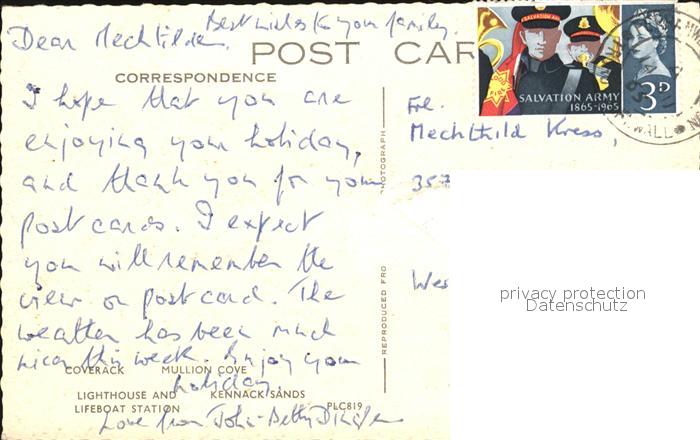 Best wishes to your family.
Dear Mechthild.
POST CAR
CORRESPONDENCE
I hope that you are
enjoying your holiday,
and thank you for your
post cards. I expect
you will remember the
view on post card. The
weather has been much
nicer this week. Enjoy your
holiday.
Love from John - Betty
COVERACK MULLION COVE
LIGHTHOUSE AND KENNACK SANDS
LIFEBOAT STATION PLC819
PHOTOGRAPH
REPRODUCED FRO
SALVATION ARMY
SALVATION ARMY
1865-1965
3D
Frl.
Mechthild Kress,
357
Wes
privacy protection
Datenschutz